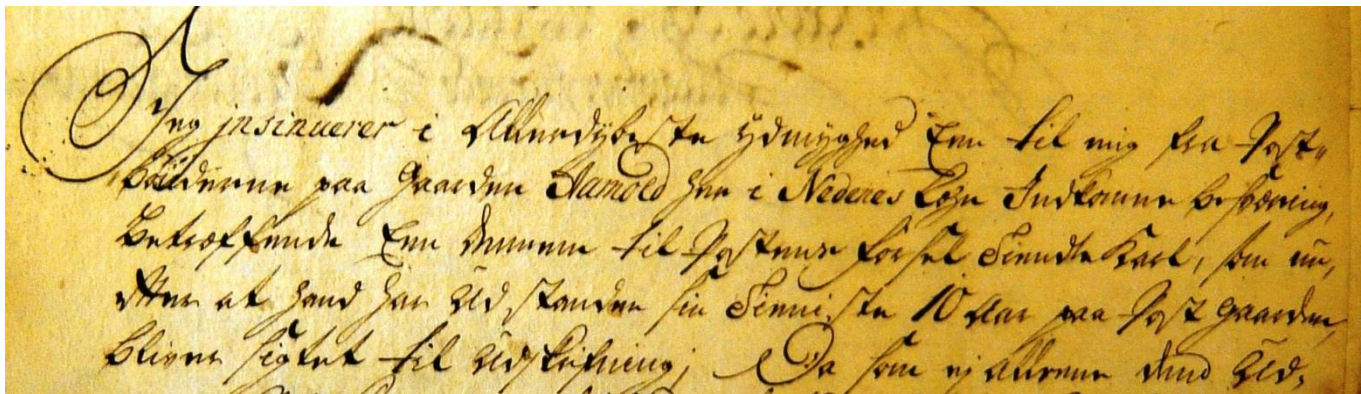 Jeg insinuerer i Allerdybeste ydmyghed Een til mig fra Post-
bønderne paa Gaarden Aamoed her i Nedenes Lehn Indkomne besværing,
betræffende Een dennem til Postens førsel tiendte Karl, som nu,
efter at hand har Udstanden sin tienniste 10 Aar paa Post Gaarden,
bliver sigtet til Udskrifning; Da som ej alleene dend Ud-